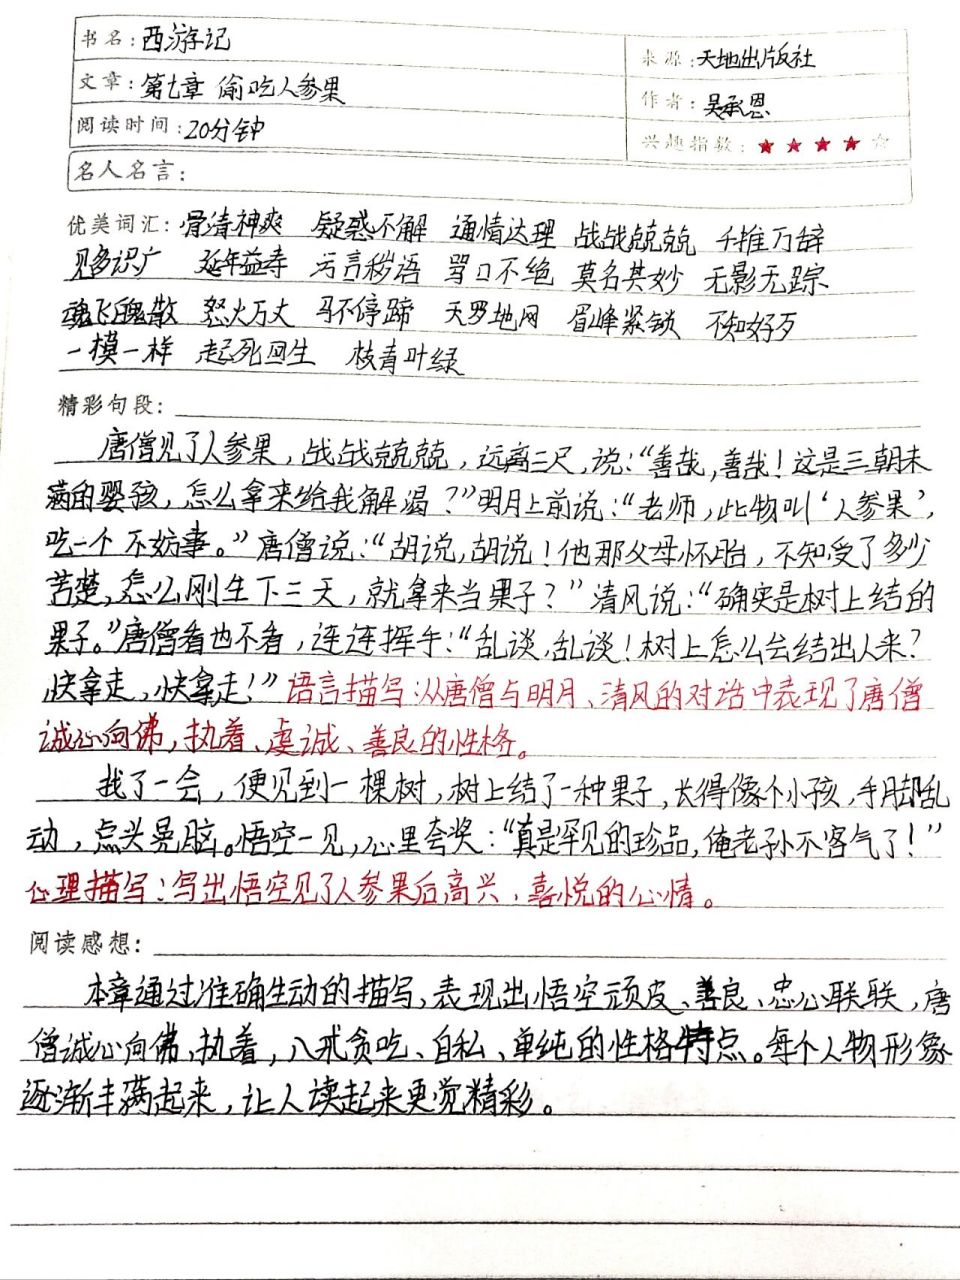 书名：西游记
来源：天地出版社
文章：第七章 偷吃人参果
作者：吴承恩
阅读时间：20分钟
兴趣指数：★★★★☆
名人名言：
优美词汇：骨清神爽 疑惑不解 通情达理 战战兢兢 千推万辞
见多识广 延年益寿 污言秽语 骂口不绝 莫名其妙 无影无踪
魂飞魄散 怒火万丈 马不停蹄 天罗地网 眉峰紧锁 不知好歹
一模一样 起死回生 枝青叶绿
精彩句段：
唐僧见了人参果，战战兢兢，远离三尺，说：“善哉，善哉！这是三朝未
满的婴孩，怎么拿来给我解渴？”明月上前说：“老师，此物叫‘人参果’，
吃一个不妨事。”唐僧说：“胡说，胡说！他那父母怀胎，不知受了多少
苦楚，怎么刚生下三天，就拿来当果子？”清风说：“确实是树上结的
果子。”唐僧看也不看，连连挥手：“乱谈，乱谈！树上怎么会结出人来？
快拿走，快拿走！”语言描写：从唐僧与明月、清风的对话中表现了唐僧
诚心向佛，执着、虔诚、善良的性格。
找了一会，便见到一棵树，树上结了一种果子，长得像个小孩，手脚乱
动，点头晃脑。悟空一见，心里夸奖：“真是罕见的珍品，俺老孙不客气了！”
心理描写：写出悟空见了人参果后高兴、喜悦的心情。
阅读感想：
本章通过准确生动的描写，表现出悟空顽皮、善良、忠心联联，唐
僧诚心向佛，执着，八戒贪吃、自私、单纯的性格特点。每个人物形象
逐渐丰满起来，让人读起来更觉精彩。